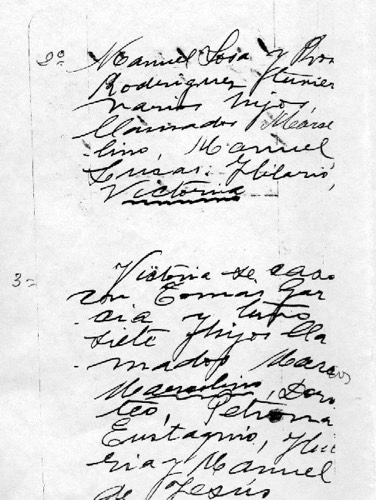 2º Manuel Sosa y
Rodriguez tuvier
varios hijos
llamados Marse
-lino, Manuel
Lucas, Hilario,
Victoria
3º Victoria se caso
con Tomas Gar
cia y tuvo
siete hijos lla
-mados Marcos
Marcelino, Doro
teo, Petrona
Eustaquio,
ria y Manuel
de Jesús